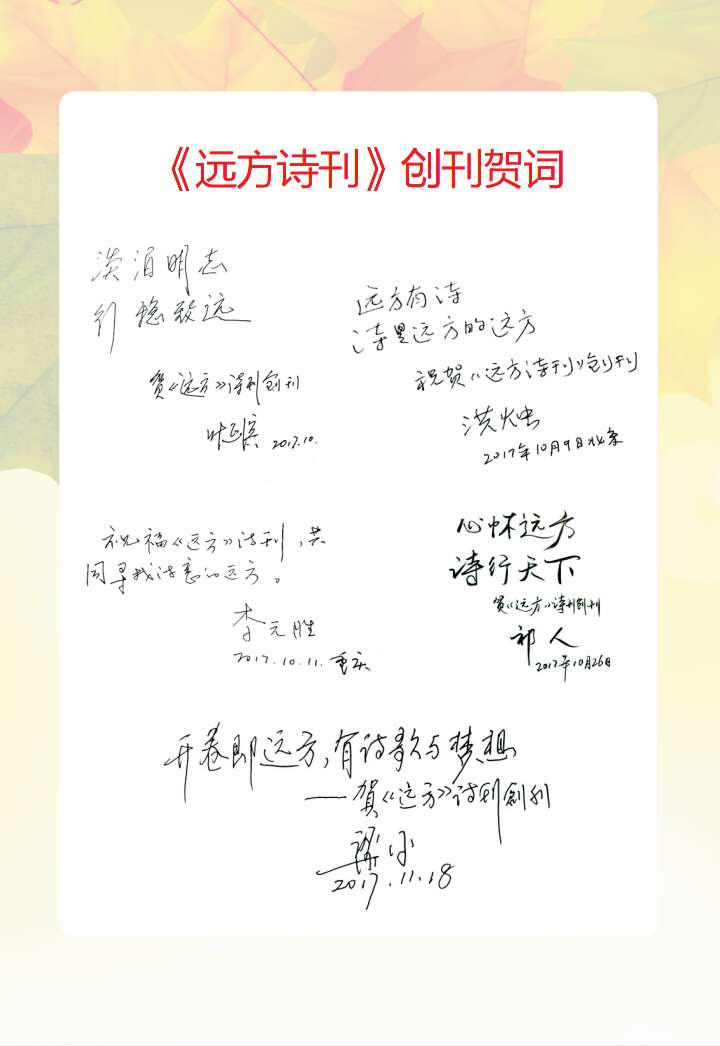 《远方诗刊》创刊贺词
淡泊明志
行稳致远
贺《远方》诗刊创刊
叶延滨 2017.10.
远方有诗
诗是远方的远方
祝贺《远方诗刊》创刊
洪烛
2017年10月9日北京
祝福《远方》诗刊,共
同寻找诗意的远方。
李元胜
2017.10.11.重庆
心怀远方
诗行天下
贺《远方》诗刊创刊
祁人
2017年10月26日
开卷即远方,有诗歌与梦想
——贺《远方》诗刊創刊
梁平
2017.11.18